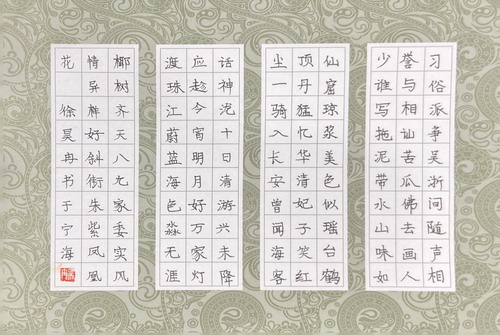 习俗派争吴浙问随声相
誉与相讪苦瓜佛去画人
少谁写拖泥带水山味如
仙窟琼浆美色似瑶台鹤
顶丹猛忆华清妃子笑红
尘一骑入长安曾闻海客
话神沱十日清游兴未降
应趁今宵明月好万家灯
渡珠江蔚蓝海色淼无涯
椰树齐天八九家委实风
情异样好斜衔朱紫凤凰
花 徐昊冉书于宁海